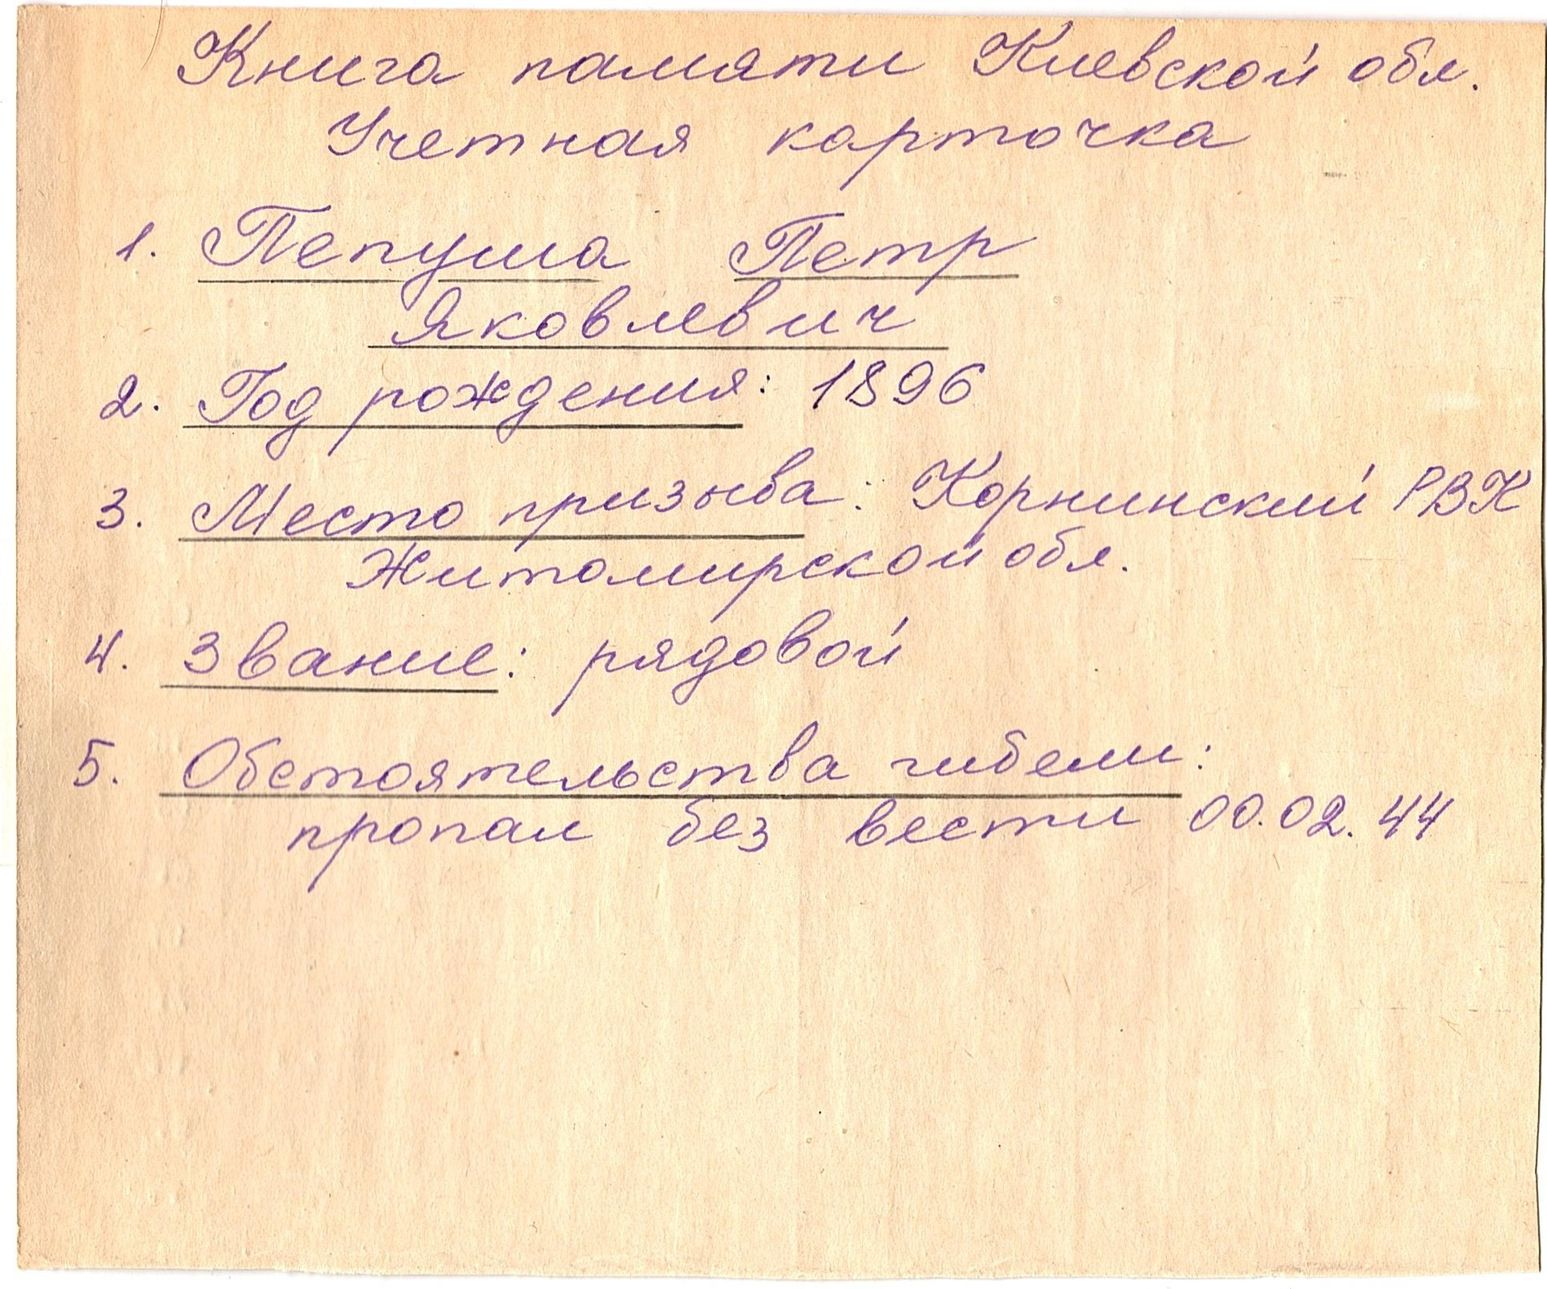 Книга памяти Киевской обл.
Учетная карточка
1. Пепуша Петр
Яковлевич
2. Год рождения: 1896
3. Место призыва: Корнинский РВК
Житомирской обл.
4. Звание: рядовой
5. Обстоятельства гибели:
пропал без вести 00.02.44